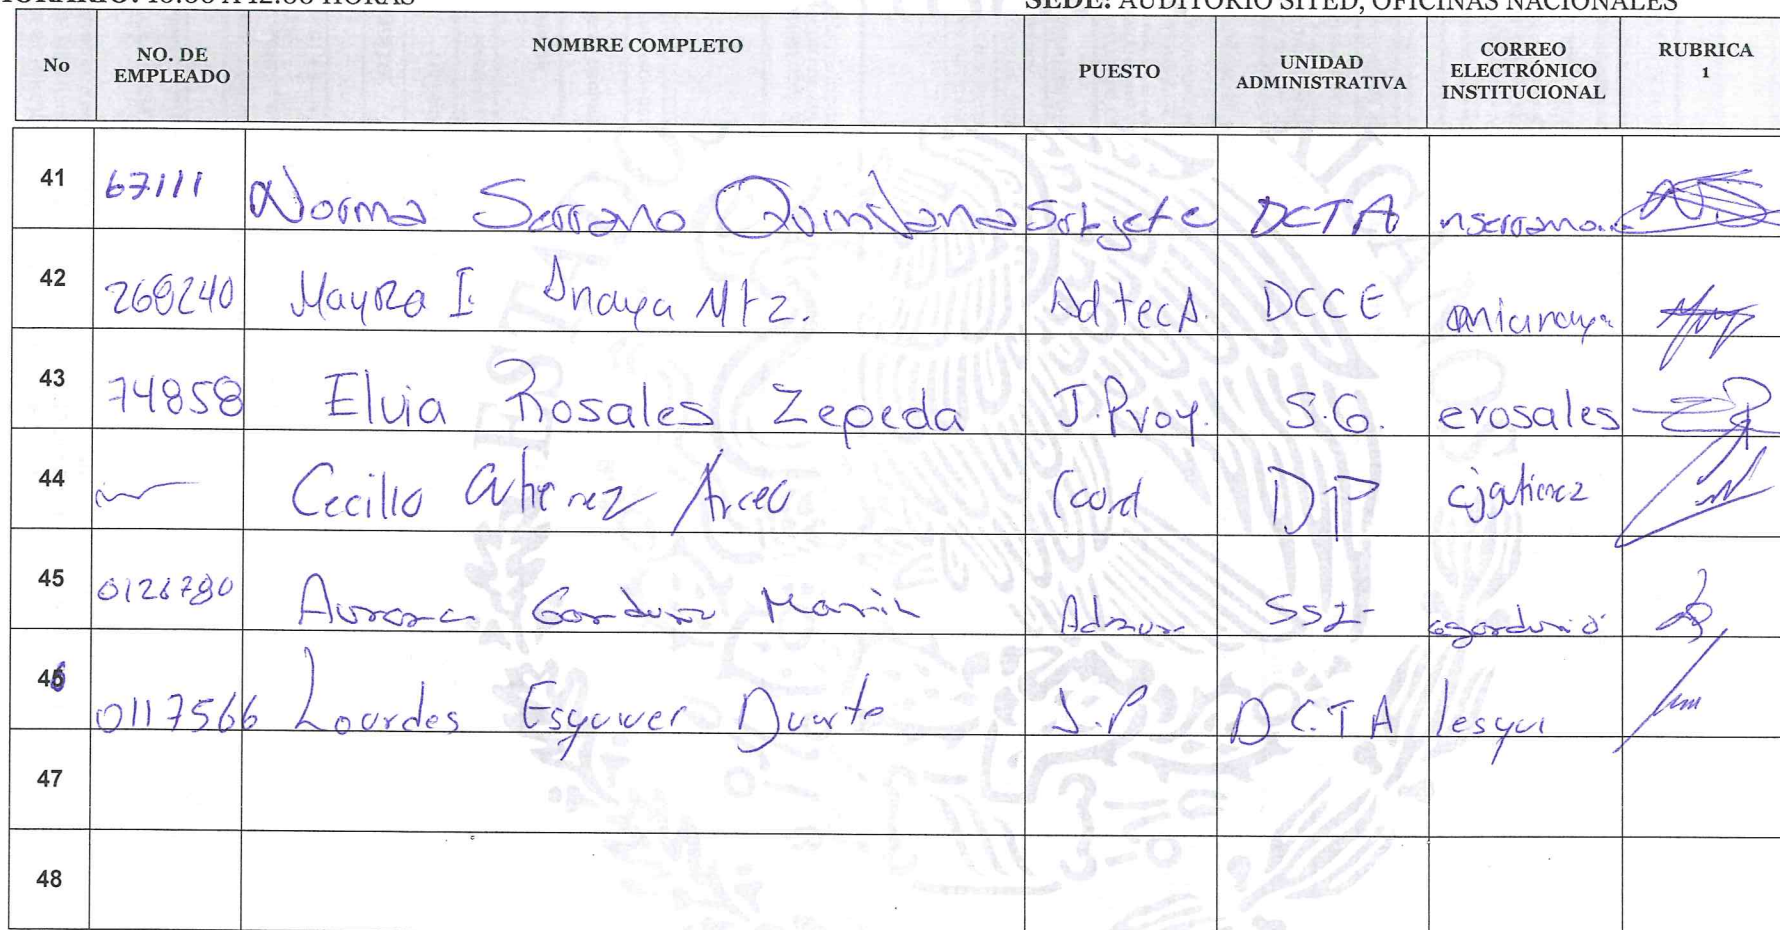 HORARIO: 10:00 A 12:00 HORAS SEDE: AUDITORIO SITED, OFICINAS NACIONALES
No NO. DE EMPLEADO NOMBRE COMPLETO PUESTO UNIDAD ADMINISTRATIVA CORREO ELECTRÓNICO INSTITUCIONAL RUBRICA 1
41 67111 Norma Serrano Quintana Subjete DCTA nserrano...
42 268240 Mayra I. Anaya Mtz. Ad tecA. DCCE
43 74858 Elvia Rosales Zepeda J.Proy. S.G. erosales
44 Cecilia Gutierrez Arceo Coord DP cjgutierrez
45 Aurora Garduño Marin SSI
46 0117566 Lourdes Esquiver Duarte J.P D.C.T.A lesqui
47
48